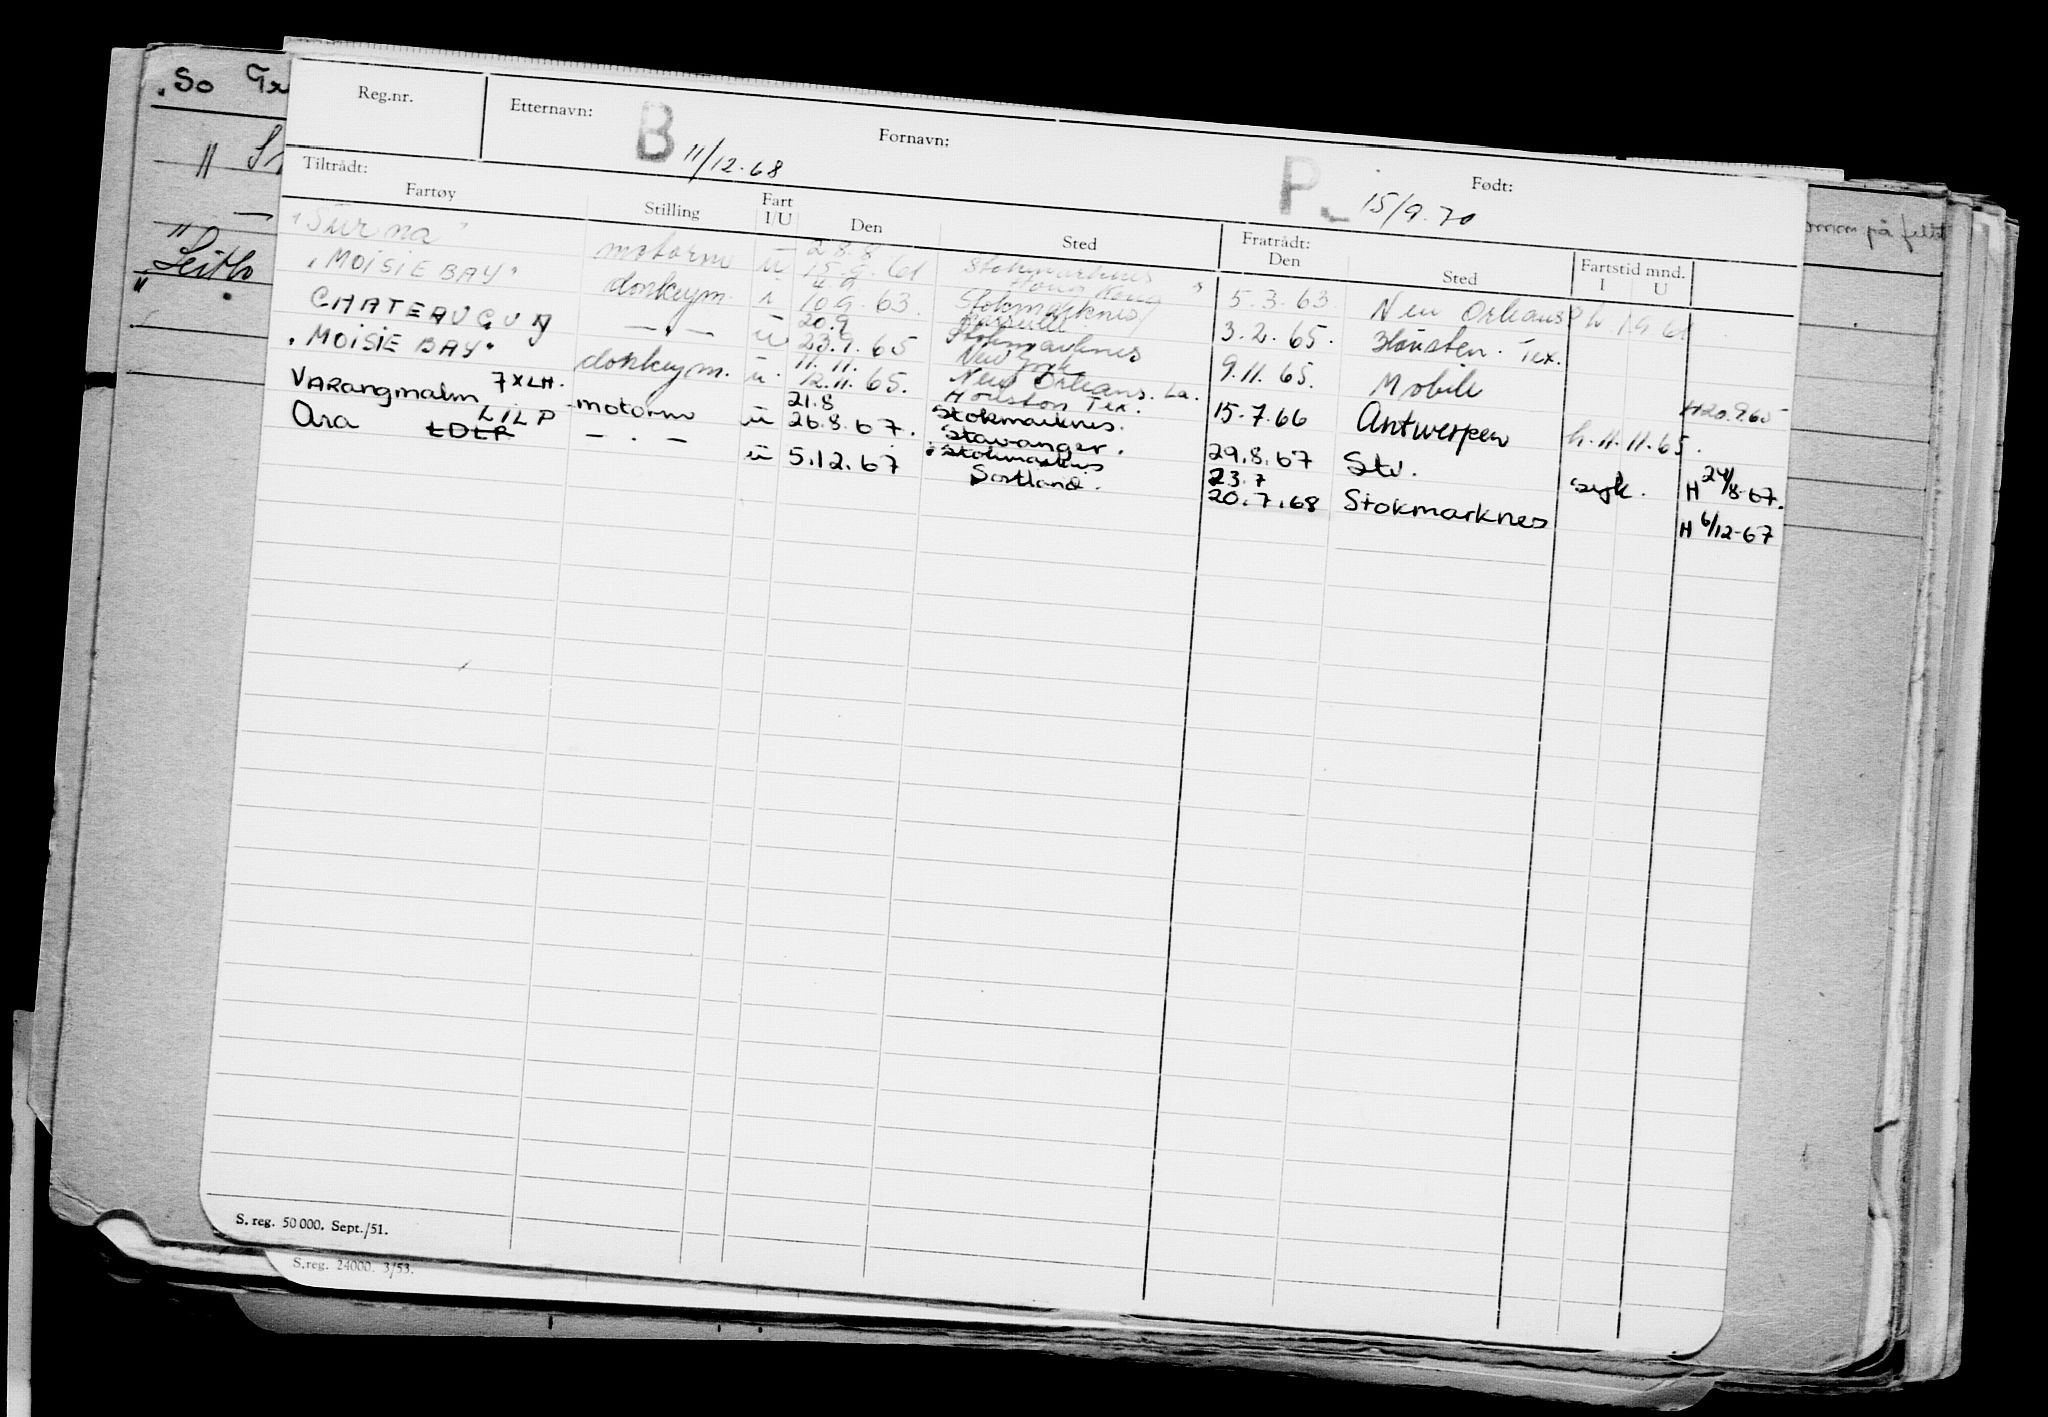 So
Reg.nr.
Etternavn:
B 11/12.68
Fornavn:
P 15/9.70
Født:
Tiltrådt:
Fratrådt:
Fartøy Stilling Fart I/U Den Sted Den Sted Fartstid mnd. I U
omm på feltet
"Surna" motorm u 28.8 15.9.61 Stokmarknes Hong Kong 5.3.63. New Orleans
"MOISIE BAY" donkeym. 4.9 10.9.63. Stokmarknes/ 3.2.65. Housten. Tex.
CHATEAUGUA — " — u 20.9 23.9.65 Stokmarknes New York 9.11.65. Mobile H20.9.65
"MOISIE BAY" donkeym. u. 11.11. 12.11.65. New Orleans. La. Houston Tex. 15.7.66 Antwerpen h.11.11.65.
VARangmalm 7XLH. motorm u 21.8 26.8.67. Stokmarknes. Stavanger. 29.8.67 Stv. syk. H 24/8-67.
Ara LILP LDLR — . — u 5.12.67 Stokmarknes Sortland. 23.7 20.7.68 Stokmarknes H 6/12-67
S. reg. 50 000. Sept./51.
S.reg. 24000. 3/53.